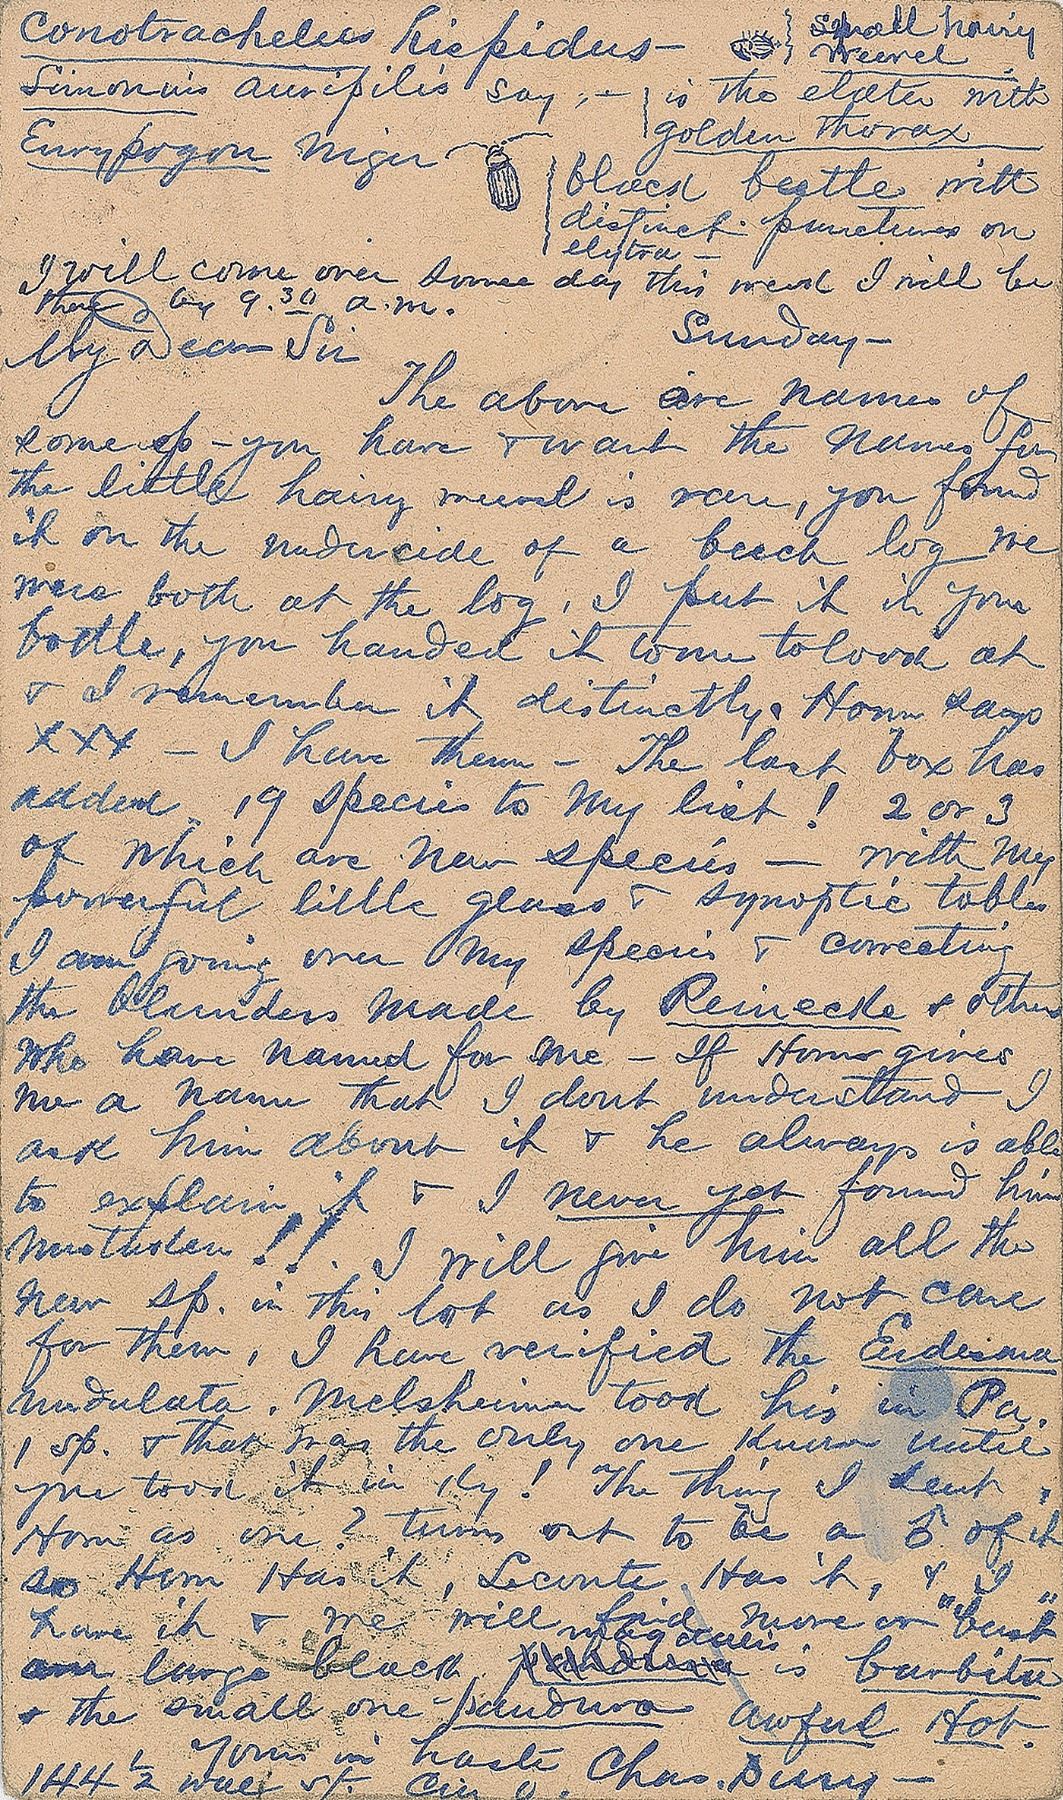 Conotrachelus hispidus — small hairy
Weevel
Limonius auripilis Say :- is the elater with
golden thorax
Eurypogon niger black beetle with
distinct punctures on
elytra —
I will come over some day this week I will be
there by 9.30 a.m.
My Dear Sir Sunday —
The above are names of
some sp — you have & want the names for
the little hairy weevel is rare, you found
it on the underside of a beech log we
were both at the log, I put it in your
bottle, you handed it to me to look at
& I remember it distinctly. Horn says
XXX — I have them — The last box has
added 19 species to my list! 2 or 3
of which are new species — with my
powerful little glass & synoptic tables
I am going over my species & correcting
the blunders made by Reinecke & others
who have named for me — If Horn gives
me a name that I dont understand I
ask him about it & he always is able
to explain it & I never yet found him
mistaken!! I will give him all the
new sp. in this lot as I do not care
for them, I have verified the
undulata. Melsheimer took his in Pa.
1 sp. & that was the only one known until
we took it in Ky! The thing I sent
Horn as one? turns out to be a ♂ of it
so Horn Has it, Leconte Has it, & I
have it & we will find more or "bust"
our large black Magdalis is barbita
& the small one - pandura Awful Hot.
Yours in haste Chas. Dury —
144 ½ wall St. Cin O.